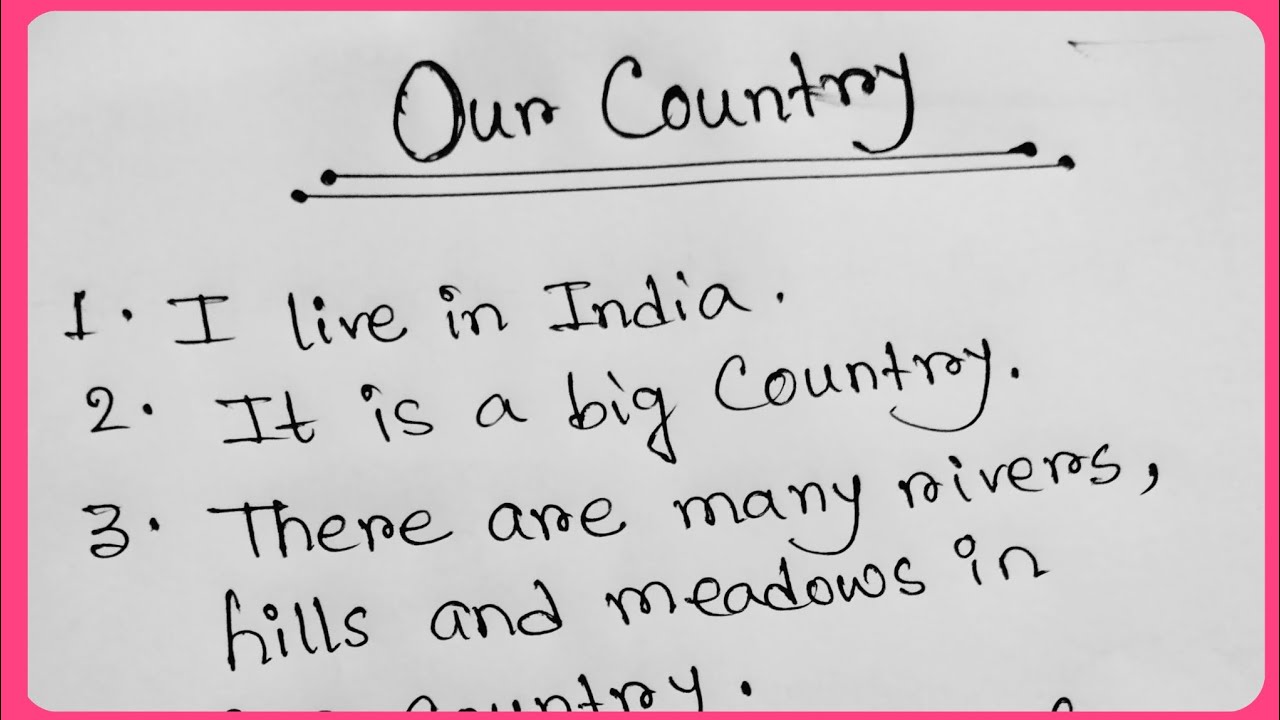 Our Country
1. I live in India.
2. It is a big Country.
3. There are many rivers,
hills and meadows in
country.